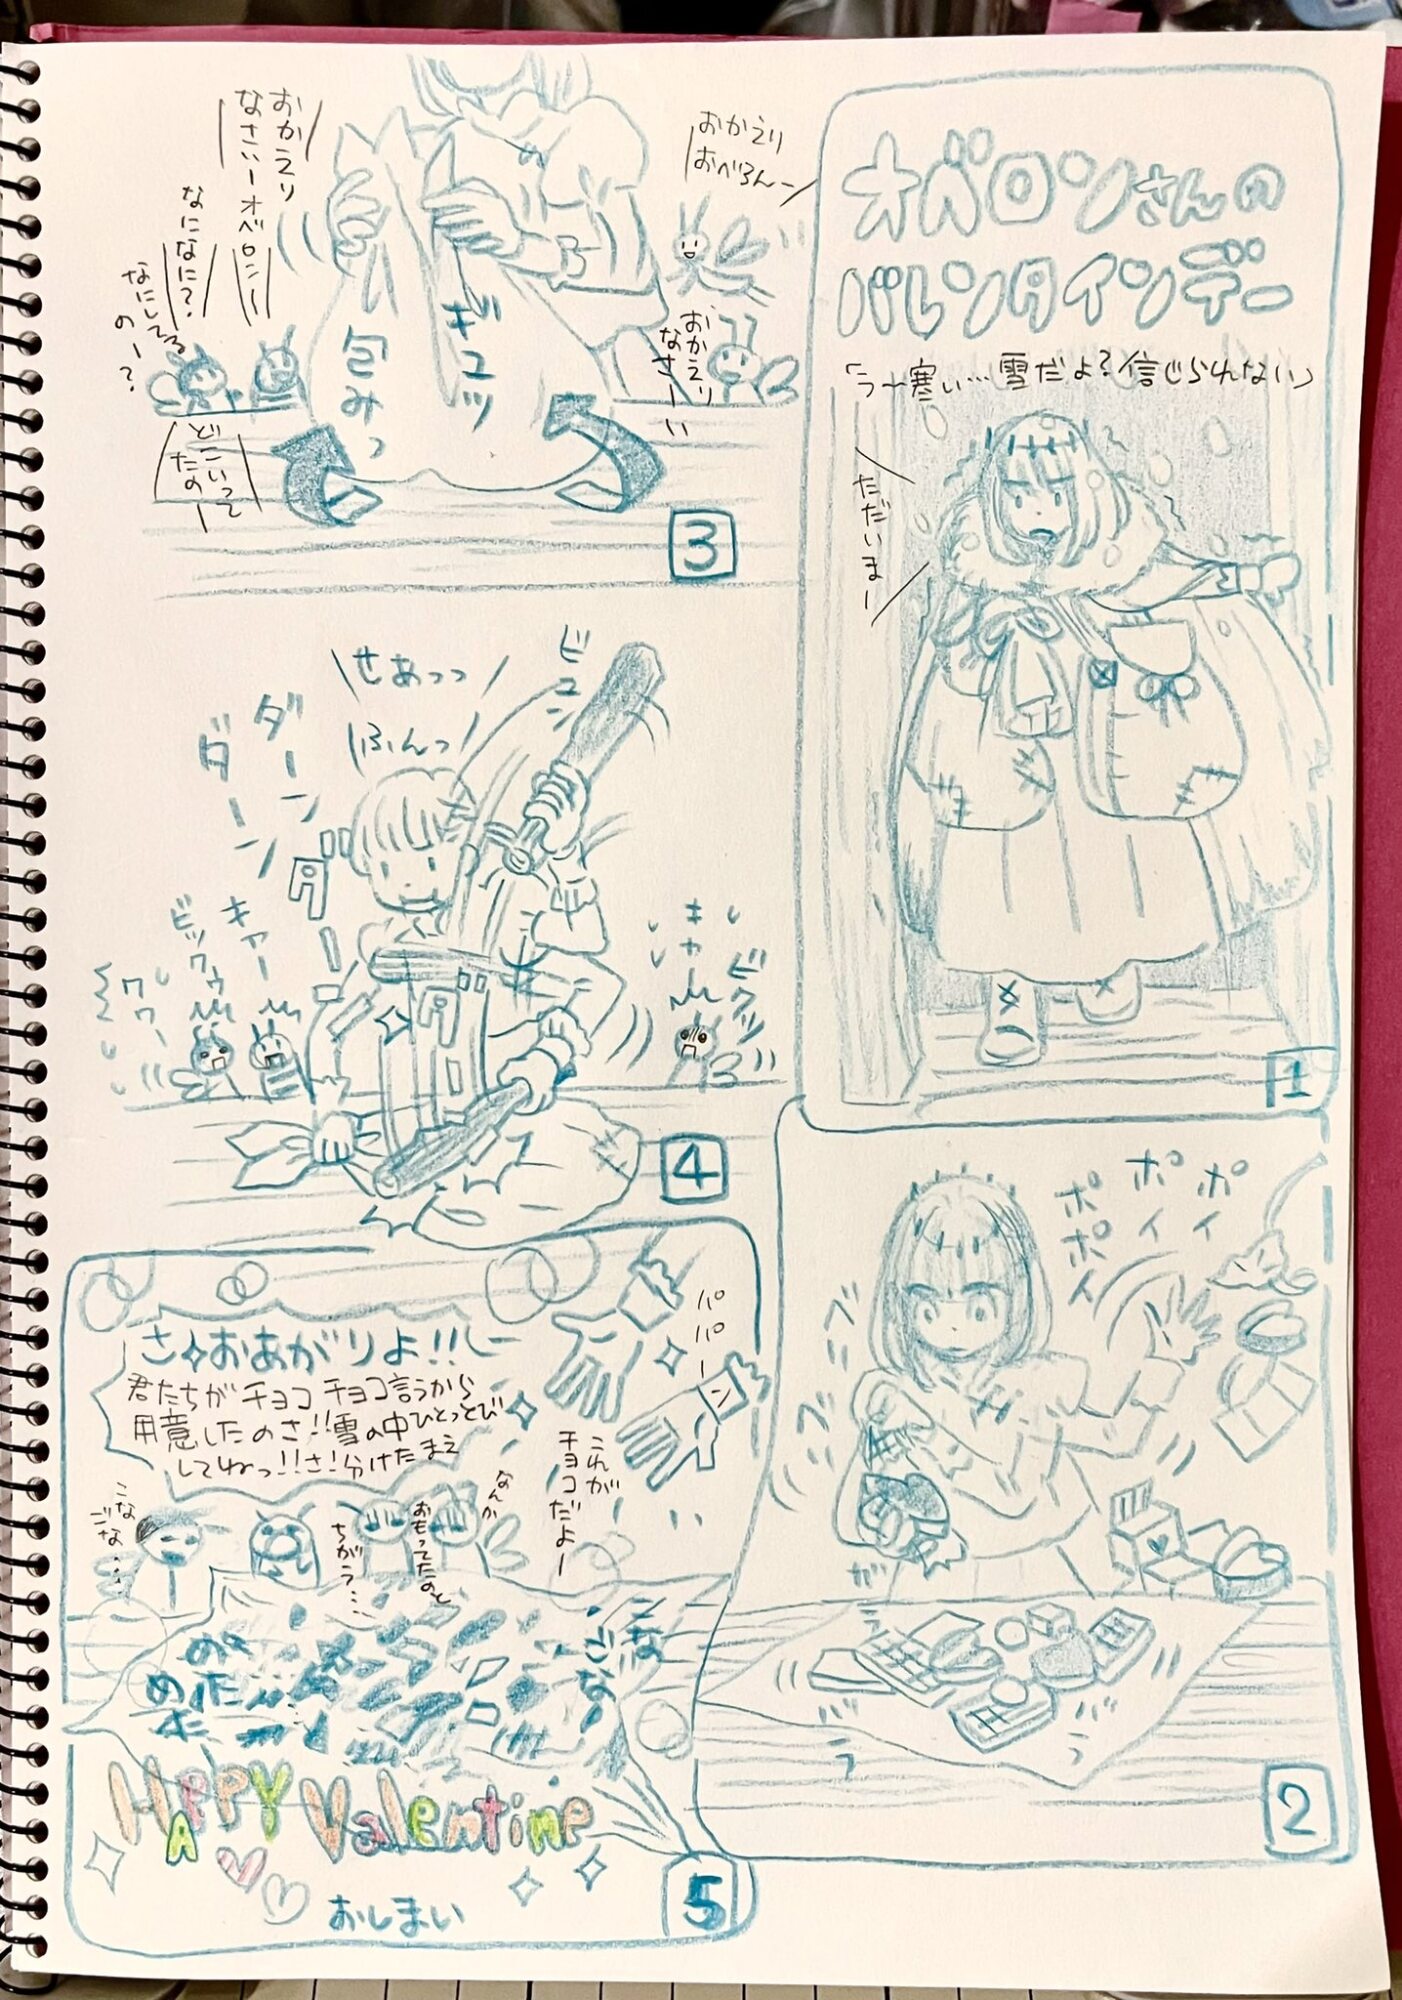 オベロンさんの
バレンタインデー
「う〜寒い…雪だよ?信じられない」
ただいまー
1
ポイ
ポイ
ポポイ
ズ
ズ
ガ
ラ
ガ
ラ
2
おかえり
おべろんー
おかえり
なさーい
おかえり
なさいーオベロンー
なになに?
なにしてる
のー?
どこいって
たのー
ギュッ
包みっ
3
せあっっ
ふんっ
ビュン
ダーン
ダーン
ダーン
キャー
ビックゥ
ワワー
キャー
ビクッ
4
さ、おあがりよ!!
君たちがチョコチョコ言うから
用意したのさ!!雪の中ひとっとび
してねっ!!さ!分けたまえ
パパーン
これが
チョコだよー
なんか
おもってたのと
ちがう…
こなごな…
こなごなー
めためた
HAPPY Valentine
おしまい
5